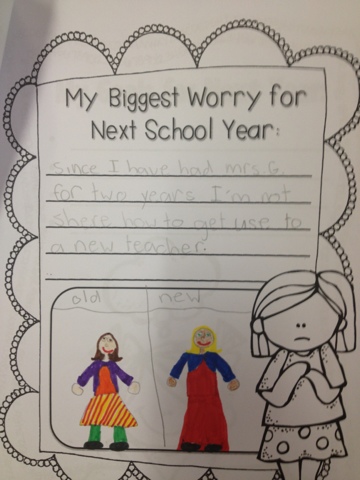 My Biggest Worry for
Next School Year:
Since I have had mrs G.
for two years I'm not
shere how to get use to
a new teacher.
old new